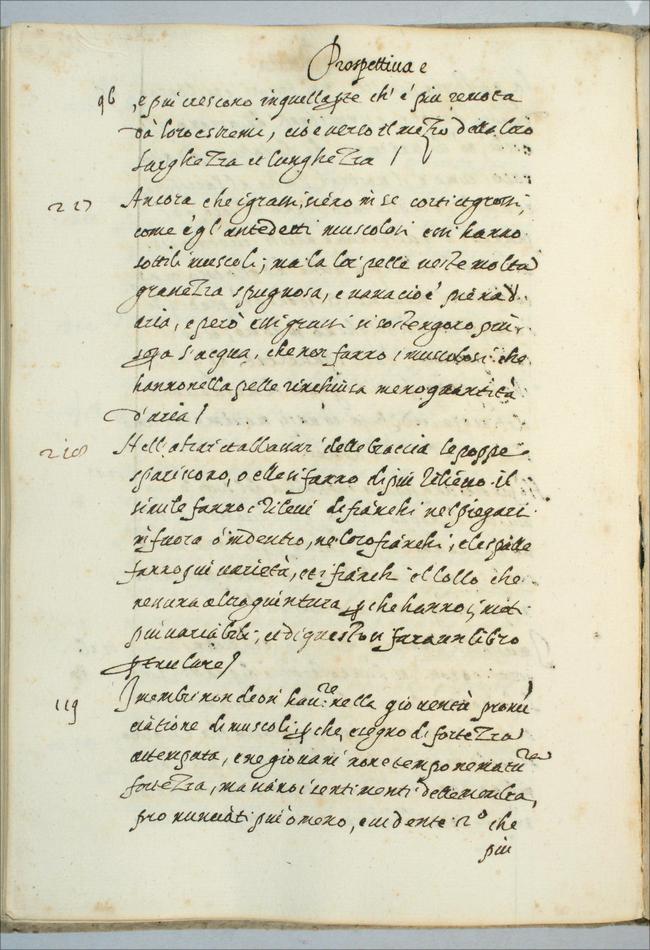 Prospettiua e
96 , e piu crescono in quella pte ch' é piu remota
dà loro estremi, cioè uerso il mezzo della loro
larghezza et lunghezza /
217 Ancora che i grassi sieno in se corti et grossi,
come è gl'antedetti muscolosi essi hanno
sottili muscoli; ma la lor pelle ueste molta
grassezza spugnosa, e uana cioè piena d'
aria, e però essi grassi si sostengono più
sopra l'acqua, che non fanno i muscolosi che
hanno nella pelle rinchiusa meno quantità
d'aria /
218 Nell'alzar et abbassar delle braccia le poppe
spariscono, o elle si fanno di più rilieuo il
simile fanno i rilieui de fianchi nel piegarsi
in fuora o indentro, ne loro fianchi, e le spalle
fanno piu uarietà, et i fianchi e'l collo che
nessuna altra giuntura p che hanno i moti
piu uariabili, et di questo si farà un libro
pticulare /
119 I membri non deon hauere nella giouentù pronū
ciatione di muscoli p che è segno di fortezza
attempata, e ne giouani non è tempo ne matura
fortezza, ma siano i sentimenti delle membra,
pronunciati piú ò meno, euidente che
piu